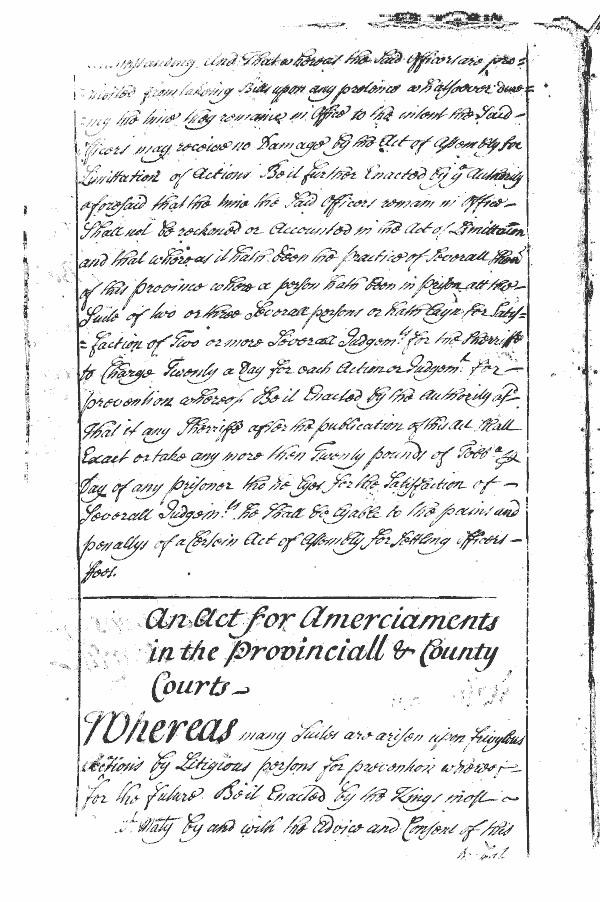 And That whereas the Said Officers are pro=
=hibited from takeing Bills upon any pretence whatsoever dure=
=ing the time they remaine in Office to the intent the Said
Officers may receive no Damage by the Act of Assembly for
Limittation of Actions Be it further Enacted by ye Authority
aforesaid that the time the Said Officers remain in Office
Shall not be reckoned or Accounted in the Act of Limittation
and that whereas it hath been the practice of Severall
of this Province where a person hath been in prison att the
Suite of two or three Severall persons or hath Layn for Satis=
=faction of Two or more Severall Judgemts for the Sherriffe
to Charge Twenty a Day for each Action or Judgemt For
prevention whereof Be it Enacted by the Authority afd
That if any Sherriffe after the publication of this Act Shall
Exact or take any more then Twenty pounds of Tobbo p
Day of any prisoner tho he Lyes for the Satisfaction of
Severall Judgemts he Shall be Lyable to the pains and
penaltys of a Certain Act of Assembly for Settling Officers
ffees.
An Act for Amerciaments
in the Provinciall & County
Courts
Whereas many Suites are arisen upon frivolous
Actions by Litigious persons for prevention whereof
for the future Be it Enacted by the Kings most
Maty by and with the Advice and Consent of this